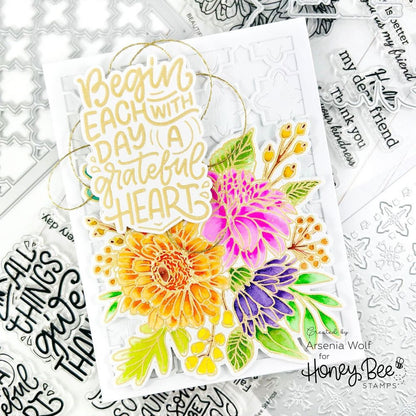 Begin
EACH WITH
DAY A
grateful
HEART
is better
my friend
Hello
my dear friend
Thank you
your kindness
ALL
THINGS
give
THAN
every day
Created by
Arsenia Wolf
for
Honey Bee
STAMPS